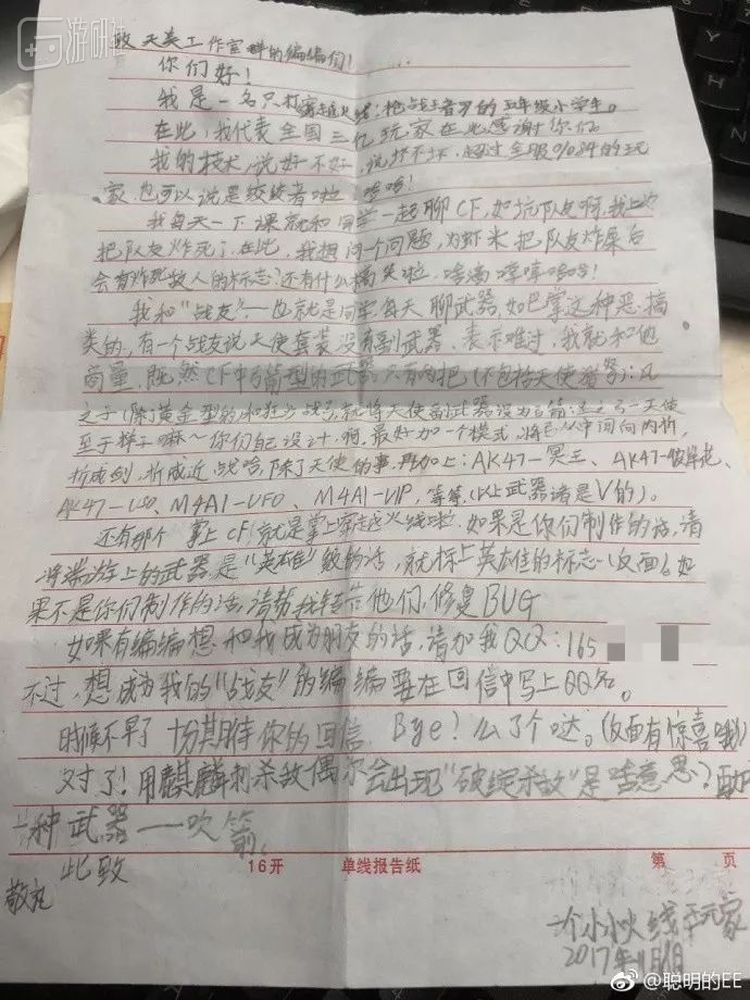 游研社
致天美工作室群的编编们!
你们好!
我是一名只打穿越火线:枪战王者的五年级小学生。
在此,我代表全国三亿玩家在此感谢你们。
我的技术,说好不好,说坏不坏,超过全服%084的玩
家,也可以说是佼佼者啦 哈哈!
我每天一下课就和同学一起聊CF,如坑队友啊,我
把队友炸死了,在此,我想问个问题,为虾米把队友炸杀后
会有炸死敌人的标志?还有什么搞笑啦,
我和"战友"——也就是同学每天聊武器,如巴掌这种恶搞
类的,有一个战友说天使套装没有副武器,表示难过,我就和他
商量,既然CF中弓箭型的武器只有两把(不包括天使
之子(除了黄金型的)和狂 就将天使副武器设为 天使
至于样子嘛~你们自己设计啊,最好加一个模式,将它从中间向内折,
折成剑,折成近战哈,除了天使的事,再加上:AK47-冥王、AK47-彼岸花、
AK47-USO、M4A1-UFO、M4A1-VIP,等等,(以上武器 是V的)。
还有那个掌上CF!就是掌上穿越火线啦,如果是你们制作的话,请
将端游上的武器,是"英雄"级的话,就标上英雄的标志-(反面),如
果不是你们制作的话,请帮我转告他们,修复BUG
如果有编编想和我成为朋友的话,请加我QQ:165
不过,想成为我的"战友"的编编要在回信中写上QQ名。
时候不早了 期待你的回信 Bye!么了个哒。(反面有惊喜哦)
对了!用麒麟刺杀敌偶尔会出现"破绽杀敌"是啥意思?
一种武器——吹箭。
此致
16开 单线报告纸 第 页
敬礼
一个小小火线玩家
2017年11月1日
@聪明的EE